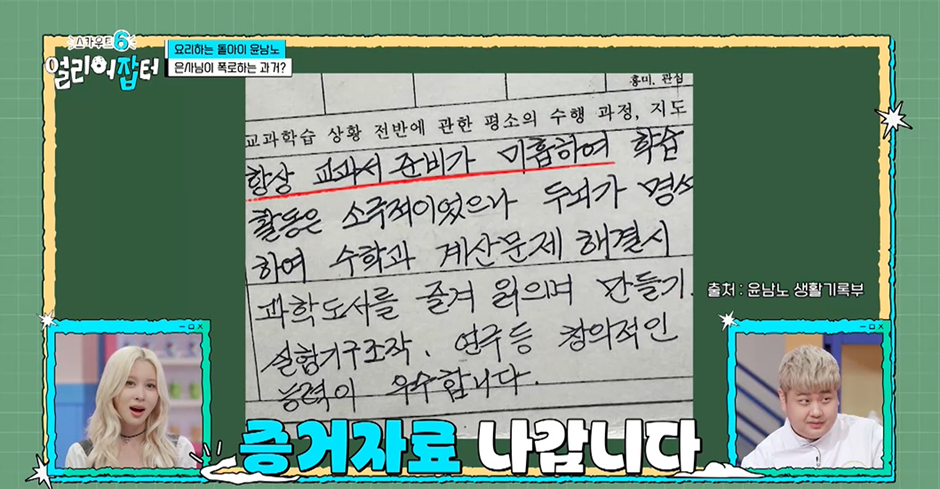 스카우트6
얼리어잡터
요리하는 돌아이 윤남노
은사님이 폭로하는 과거?
흥미, 관심
교과학습 상황 전반에 관한 평소의 수행 과정, 지도
항상 교과서 준비가 미흡하여 학습
활동은 소극적이었으나 두뇌가 명석
하여 수학과 계산문제 해결시
과학도서를 즐겨 읽으며 만들기.
실험기구조작. 연주등 창의적인
능력이 우수합니다.
출처 : 윤남노 생활기록부
증거자료 나갑니다